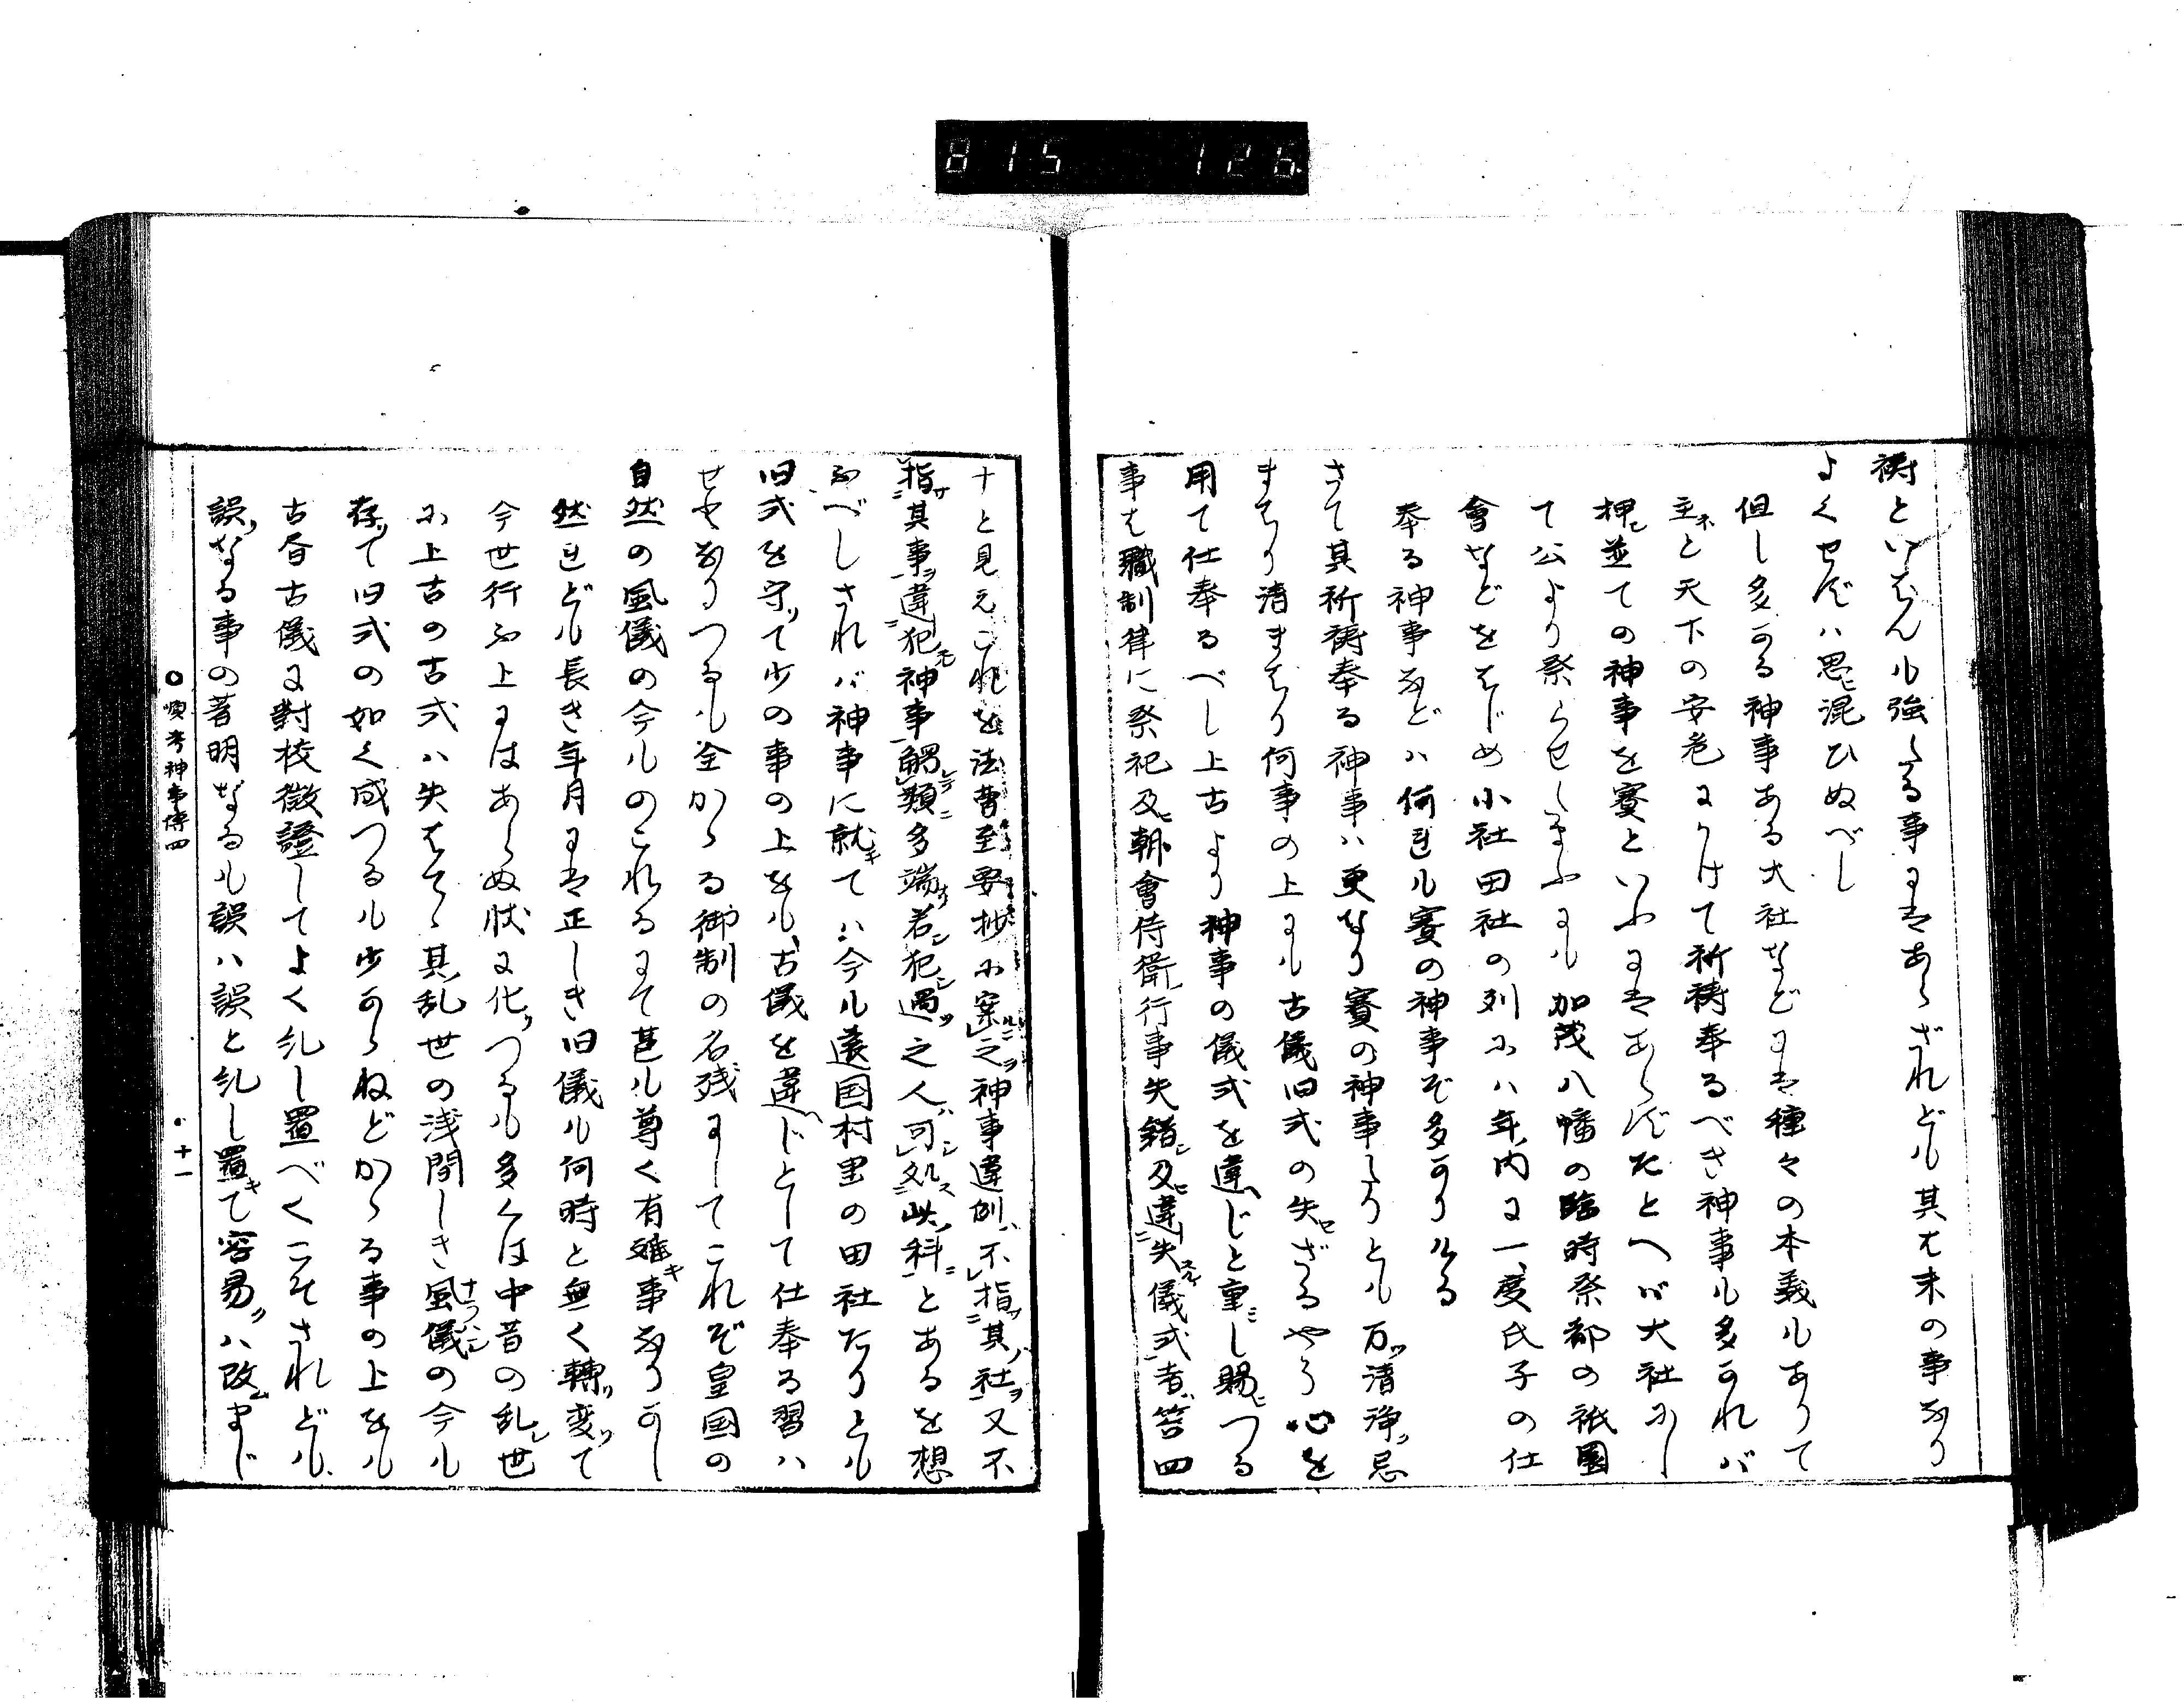 815 126
祷といはんも強たる事にはあらざれども其は末の事なり
よくせずハ思ヒ混ひぬべし
但し多かる神事ある大社などには種々の本義もありて
主ネと天下の安危にかけて祈祷奉るべき神事も多かれバ
押シ並ての神事を賽といふにはあらずたとへバ大社にし
て公より祭らせたまふにも加茂八幡の臨時祭都の祇園
會などをはじめ小社田社の列にハ年内に一度氏子の仕
奉る神事などハ何れも賽の神事ぞ多かりける
さて其祈祷奉る神事ハ更なり賽の神事たりとも万ツ清浄ク忌
まはり清まはり何事の上にも古儀旧式の失セざるやう心を
用て仕奉るべし上古より神事の儀式を違ヘじと重ニし賜ヒつる
事は職制律に祭祀及ヒ朝會侍衛行事失錯シ及ヒ違失スル儀式者ハ笞四
十と見えこれを法曹至要抄に案ルニ之ヲ神事違例ハ不指サ其ノ社ヲ又不
指サ其事ヲ違犯モ神事觸レテ類ニ多端ナリ若シ犯シ過ツ之人ハ可シ処ス此ノ科ニとあるを想
ふべしされバ神事に就キてハ今も遠国村里の田社たりとも
旧式を守ツて少の事の上をも古儀を違ヘじとして仕奉る習ハ
せやなりつるも全かゝる御制の名残にしてこれぞ皇国の
自然の風儀の今ものこれるにて甚も尊く有難キ事なりかし
然れども長き年月には正しき旧儀も何時と無く轉ツり変リて
今世行ふ上にはあらぬ状に化リつるも多くは中昔の乱レ世
に上古の古式ハ失はてゝ其乱世の浅間しき風儀ナラハシの今も
存ツて旧式の如く成つるも少からねどかゝる事の上をも
古昔古儀に對校徴證してよく糺し置べくこそされども
誤ツなる事の著明なるも誤ハ誤と糺し置キて容易クハ改ムまじ
○喚考神事傳四 十一